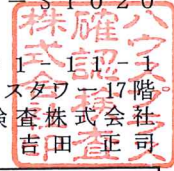 31020
1-1-1-1
スタワー17階
検査株式会社
吉田 正司
ハウスプラス
確認検査
株式会社印